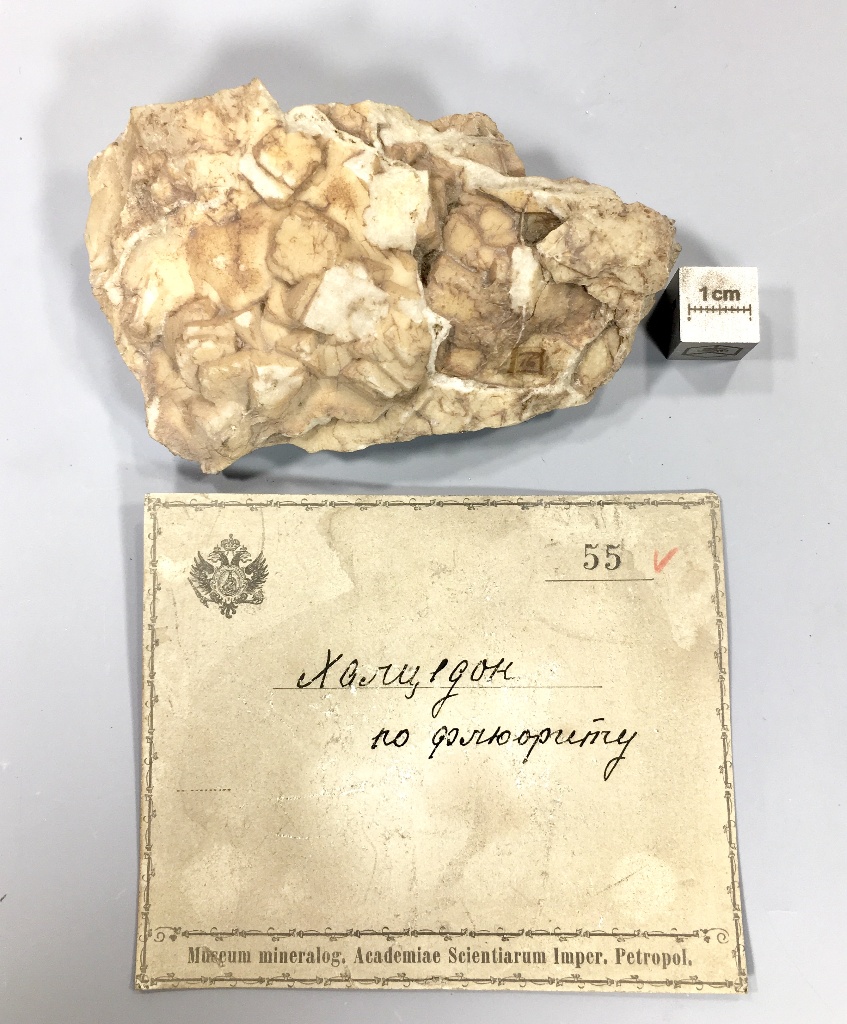 1 cm
55
Халцедон
по флюориту
Museum mineralog. Academiae Scientiarum Imper. Petropol.